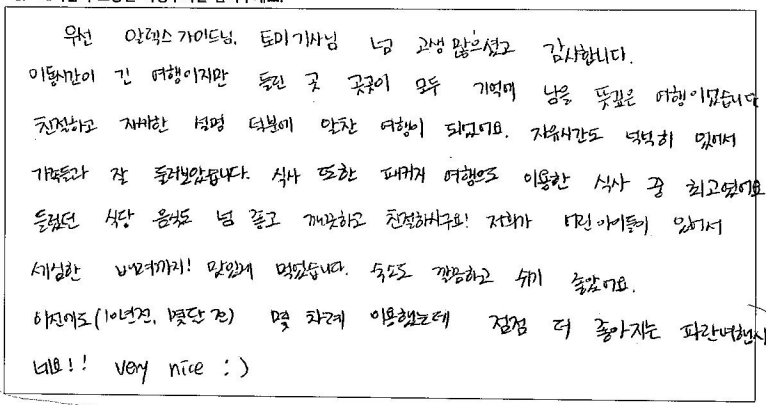 우선 알렉스 가이드님, 토미 기사님 넘 고생 많으셨고 감사합니다.
이동시간이 긴 여행이지만 들린 곳 곳곳이 모두 기억에 남을 뜻깊은 여행이었습니다
친절하고 자세한 설명 덕분에 알찬 여행이 되었어요. 자유시간도 넉넉히 있어서
가족들과 잘 둘러보았습니다. 식사 또한 패키지 여행으로 이용한 식사 중 최고였어요
들렸던 식당 음식도 넘 좋고 깨끗하고 친절하시구요! 저희가 어린 아이들이 있어서
세심한 배려까지! 맛있게 먹었습니다. 숙소도 깔끔하고 쉬기 좋았어요.
이전에도 (10년전, 몇달 전) 몇 차례 이용했는데 점점 더 좋아지는 파란여행사
네요!! very nice :)